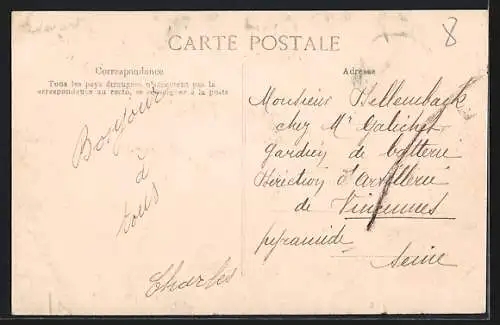 8
CARTE POSTALE
Correspondance
Tous les pays étrangers n'acceptent pas la
correspondance au recto, se renseigner à la poste
Adresse
Bonjour
à
tous
Charles
Monsieur Hellemback
chez Mr Galichet
Gardien de batterie
Direction d'Artillerie
de Vincennes
pyramide
Seine